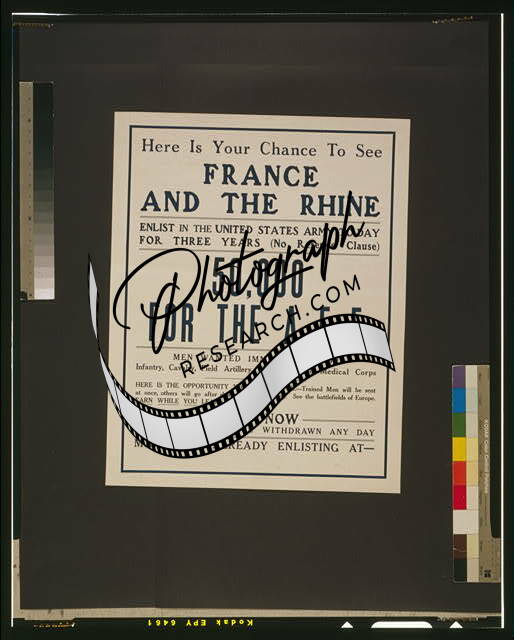 Here Is Your Chance To See
FRANCE
AND THE RHINE
ENLIST IN THE UNITED STATES ARMY TODAY
FOR THREE YEARS (No Clause)
50,000
FOR THE A. E. F.
MEN WANTED
Infantry, Cavalry, Field Artillery Medical Corps
HERE IS THE OPPORTUNITY —Trained Men will be sent
at once, others will go after See the battlefields of Europe.
EARN WHILE YOU
NOW
WITHDRAWN ANY DAY
ALREADY ENLISTING AT—
Photograph
RESEARCH.COM
Kodak EPY 6461